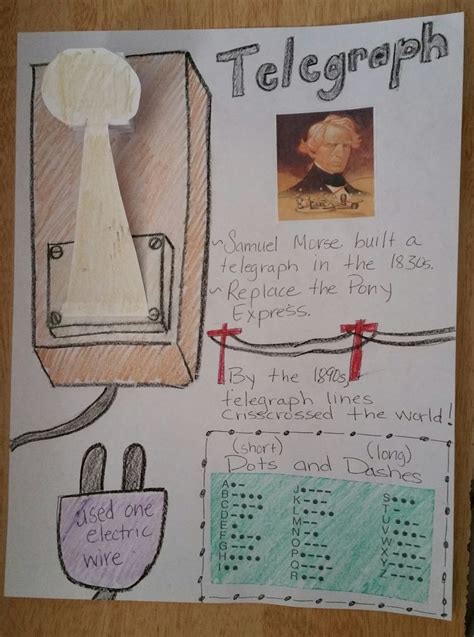 Telegraph
~Samuel Morse built a
telegraph in the 1830s.
~Replace the Pony
Express.
By the 1890s,
telegraph lines
crisscrossed the world!
used one
electric
wire
(short) (long)
Dots and Dashes
A
B
C
D
E
F
G
H
I
J
K
L
M
N
O
P
Q
R
S
T
U
V
W
X
Y
Z